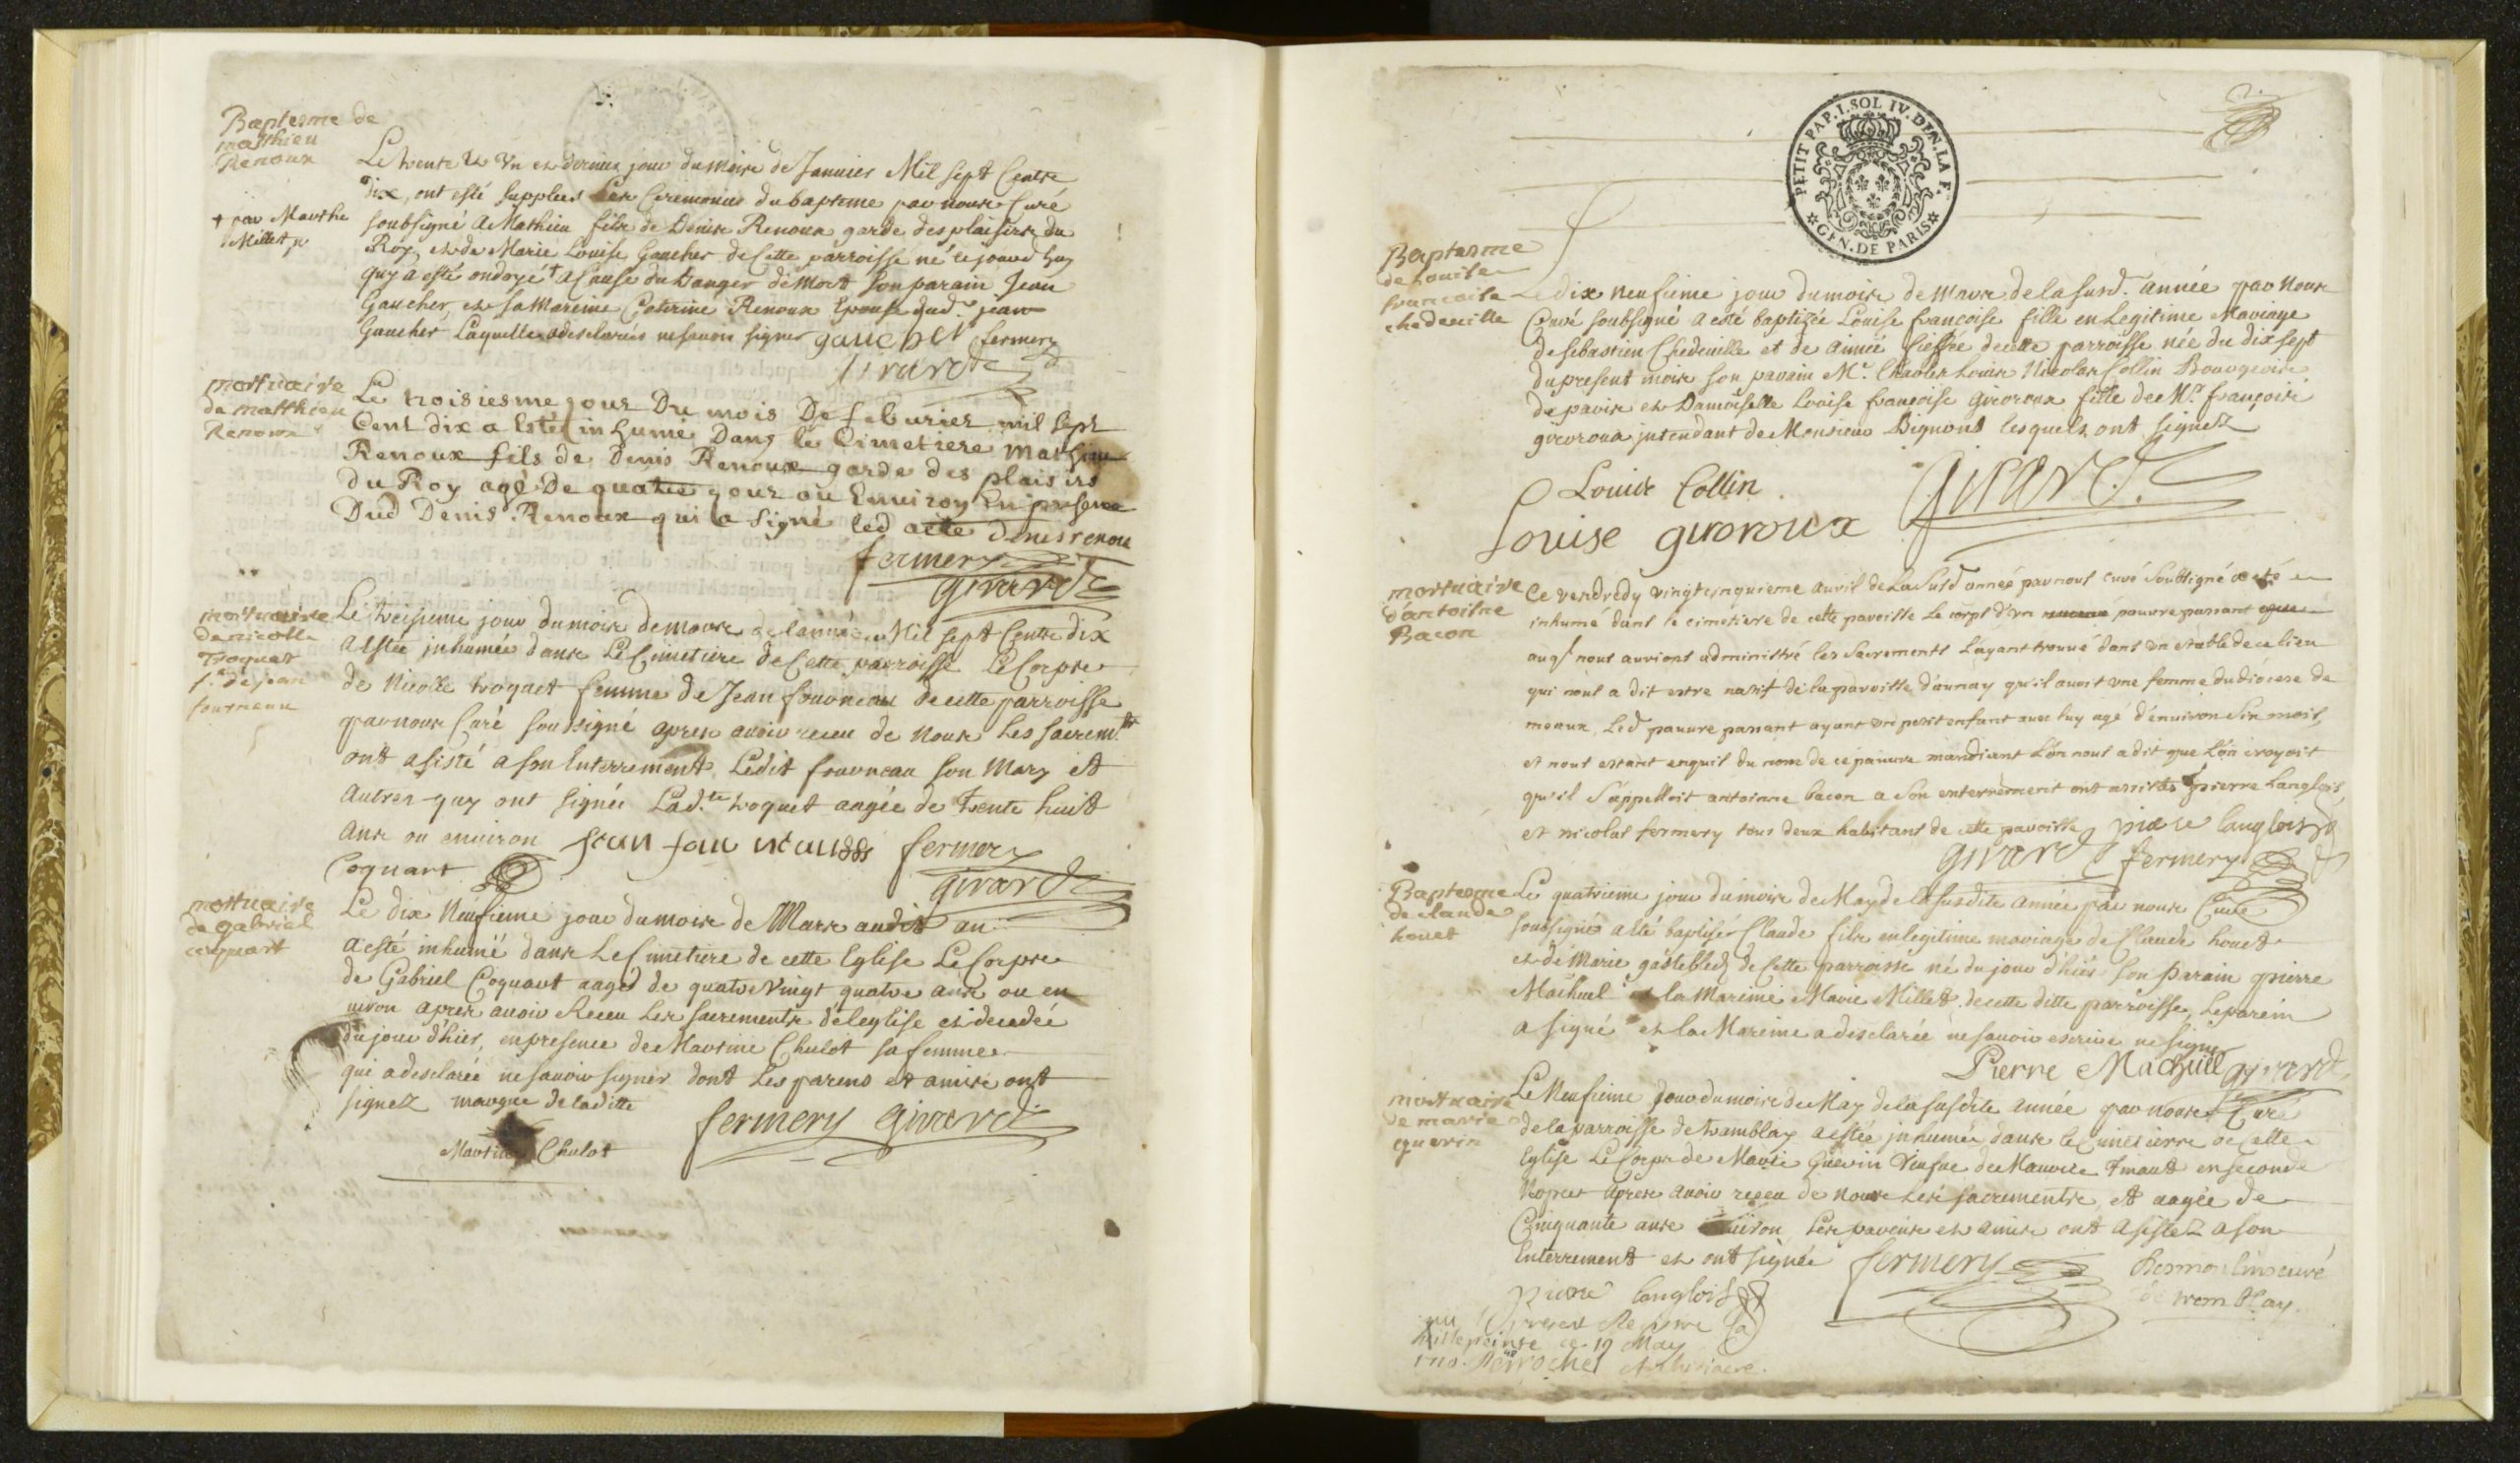 Baptesme de
matthieu
Renoux
Le trente et un et dernier jour du mois de Januier Mil sept Cents
dix, ont esté supplées Les Ceremonies du baptesme par nous Curé
+ par Marthe
Millet
soubsigné a Mathieu fils de Denis Renoux garde des plaisirs du
Roy, et de Marie Louise Gaucher de Cette parroisse né cejourdhuy
quy a esté ondoyé + a Cause du Danger de mort son parain Jean
Gaucher, et sa Mareine Caterine Renoux Epouse dud. jean
Gaucher Laquelle a desclarée ne sauoir signer gaucher fermery
Girard
mortuaire
de matthieu
Renoux
Le troisiesme jour Du mois De feburier mil sept
Cent dix a Esté inhumé Dans le Cimetiere mathieu
Renoux fils de Denis Renoux garde des plaisirs
du Roy agé De quatre jour ou Enuiron En presence
Dud Denis Renoux qui a signé led acte denis renou
fermery
girard
mortuaire
de nicolle
troquet
f.e de jean
fourneau
Le treisieme jour du mois de mars de lannée Mil sept Cents dix
a Estée inhumée dans Le Cimetiere de Cette parroisse Le Corps
de Nicolle troquet femme de Jean fourneau de cette parroisse
par nous Curé soussigné apres auoir receu de nous Les sacremts
ont asisté a son Enterrement Ledit fourneau son Mary et
autres quy ont signée Lad.te troquet aagée de trente huit
ans ou enuiron fermery
Coquart girard
mortuaire
de gabriel
coquart
Le dix Neufieme jour du mois de Mars audit an
a esté inhumé dans Le Cimetiere de cette Eglise Le Corps
de Gabriel Coquart aagéd de quatre Vingt quatre ans ou en
uiron apres auoir Receu Les sacrements de leglise et decedée
du jour d'hier, en presence de Martine Chulot sa femme
qui a desclarée ne sauoir signer dont Les parens et amis ont
signez marque de laditte
fermery girard
Chulot
PETIT PAP. I. SOL IV. DEN. LA F.
GEN. DE PARIS
Baptesme
de Louise
francoise
chedeuille
Le dix neufieme jour du mois de mars de la susd. année par Nous
Curé soubsigné a esté baptizée Louise francoise fille en Legitime Mariage
de sebastien Chedeuille et de aimée fieffre de cette parroisse née du dix sept
du present mois son parain Mr. Charles Louis Nicolas Collin Bourgeois
de paris et Damoiselle Louise francoise giroroux fille de Mr. francois
giroroux jntendant de Monsieur Bignons lesquels ont signez
Louis Collin girard
Louise giroroux
mortuaire
d'antoisne
Bacon
Ce vendredy vingtcinquieme auril de La susd année par nous curé soubsigné a eté
inhumé dans le cimetiere de cette paroisse Le corps d'un pauure passant
auql nous aurions administré les Sacrements L'ayant trouué dans un estable de ce lieu
qui nous a dit estre natif de la paroisse d'aunay qu'il auoit une femme du diocese de
meaux, Led pauure passant ayant un petit enfant auec luy agé d'enuiron six mois,
et nous estant enquis du nom de ce pauure mandiant L'on nous a dit que L'on croyoit
qu'il s'appelloit antoinne bacon a son enterrement ont assistés pierre Langlois,
et nicolas fermery tous deux habitans de cette paroisse pierre langlois
girard fermery
Baptesme
de claude
houet
Le quatrieme jour du mois de May de la susdite année par nous Curé
soubsigné a Esté baptisé Claude fils en legitime mariage de Claude houet
et de Marie de Cette parroisse né du jour d'hier son parain pierre
Machuel et la Mareine Marie Millet de cette ditte parroisse, Le parein
a signé et la Mareine a desclarée ne sauoir escrire ne signer
Pierre Machuel girard
mortuaire
de marie
guerin
Le Neufieme jour du mois de May de la susdite année par nous Curé
de la parroisse de tramblay a estée jnhumée dans le Cimetierre de Cette
Eglise Le Corps de Marie Guerin Veufue de en seconde
Nopces apres auoir receu de nous Les sacrements, et aagée de
Cinquante ans Les parens et amis ont asistez a son
Enterrement et ont signée fermery Desmoulins curé
de tremblay
pierre langlois
Villepeinte ce 19 May
1710.